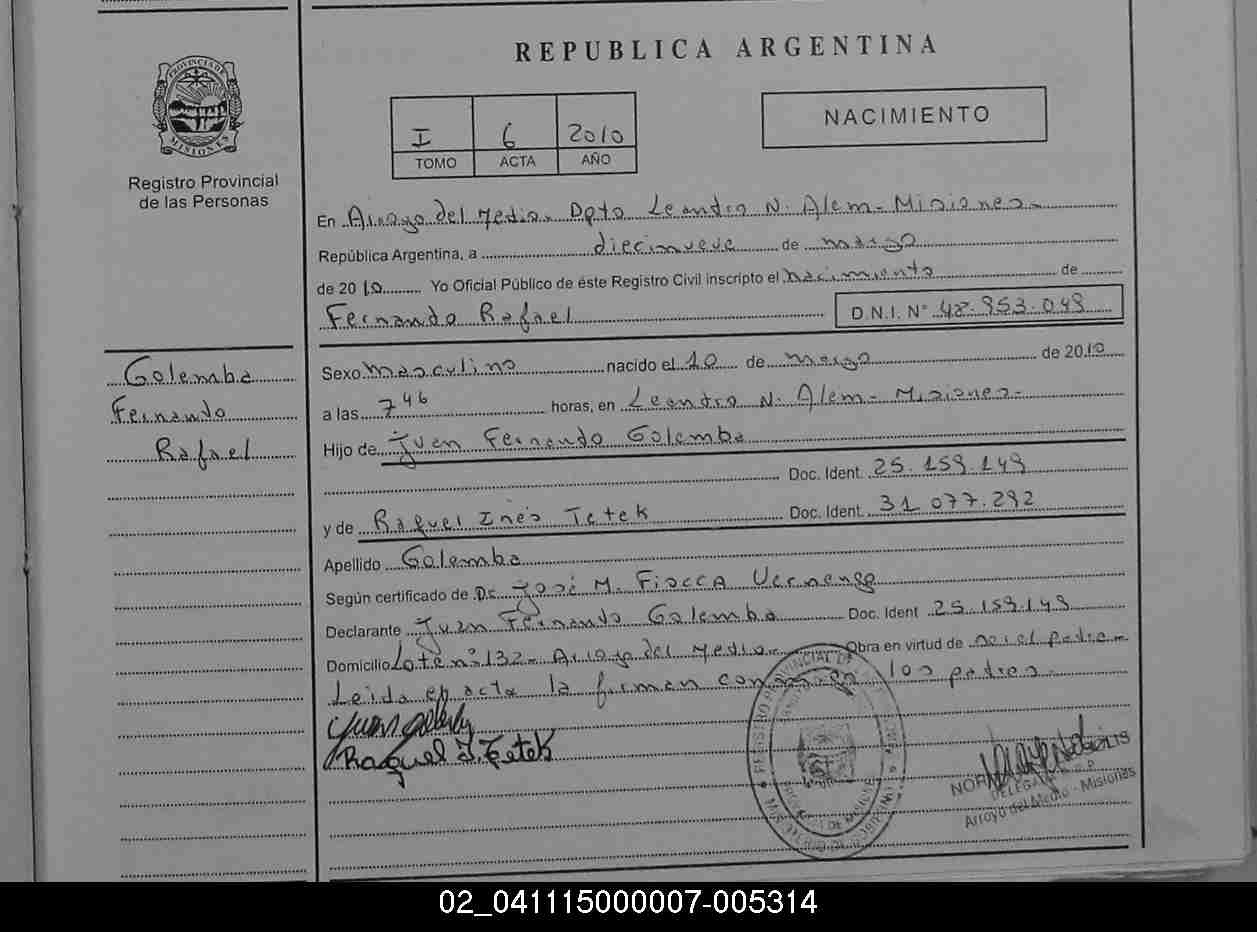 REPUBLICA ARGENTINA
PROVINCIA DE
MISIONES
Registro Provincial
de las Personas
I 6 2010
TOMO ACTA AÑO
NACIMIENTO
En Arroyo del Medio. Dpto Leandro N. Alem - Misiones -
República Argentina, a diecinueve de marzo
de 2010 Yo Oficial Público de éste Registro Civil inscripto el nacimiento de
Fernando Rafael D.N.I. N° 48.953.049
Golemba
Fernando
Rafael
Sexo masculino nacido el 10 de marzo de 2010
a las 7 46 horas, en Leandro N. Alem - Misiones -
Hijo de Juan Fernando Golemba
Doc. Ident. 25.159.149
y de Raquel Inés Tetek Doc. Ident. 31 077.292
Apellido Golemba
Según certificado de Dr José M. Fiocca
Declarante Juan Fernando Golemba Doc. Ident 25 159.149
Domicilio Lote n° 132 - Arroyo del Medio - Obra en virtud de ser el padre -
Leida el acta la firman los padres
Raquel I. Tetek
Arroyo del Medio - Misiones
02_041115000007-005314